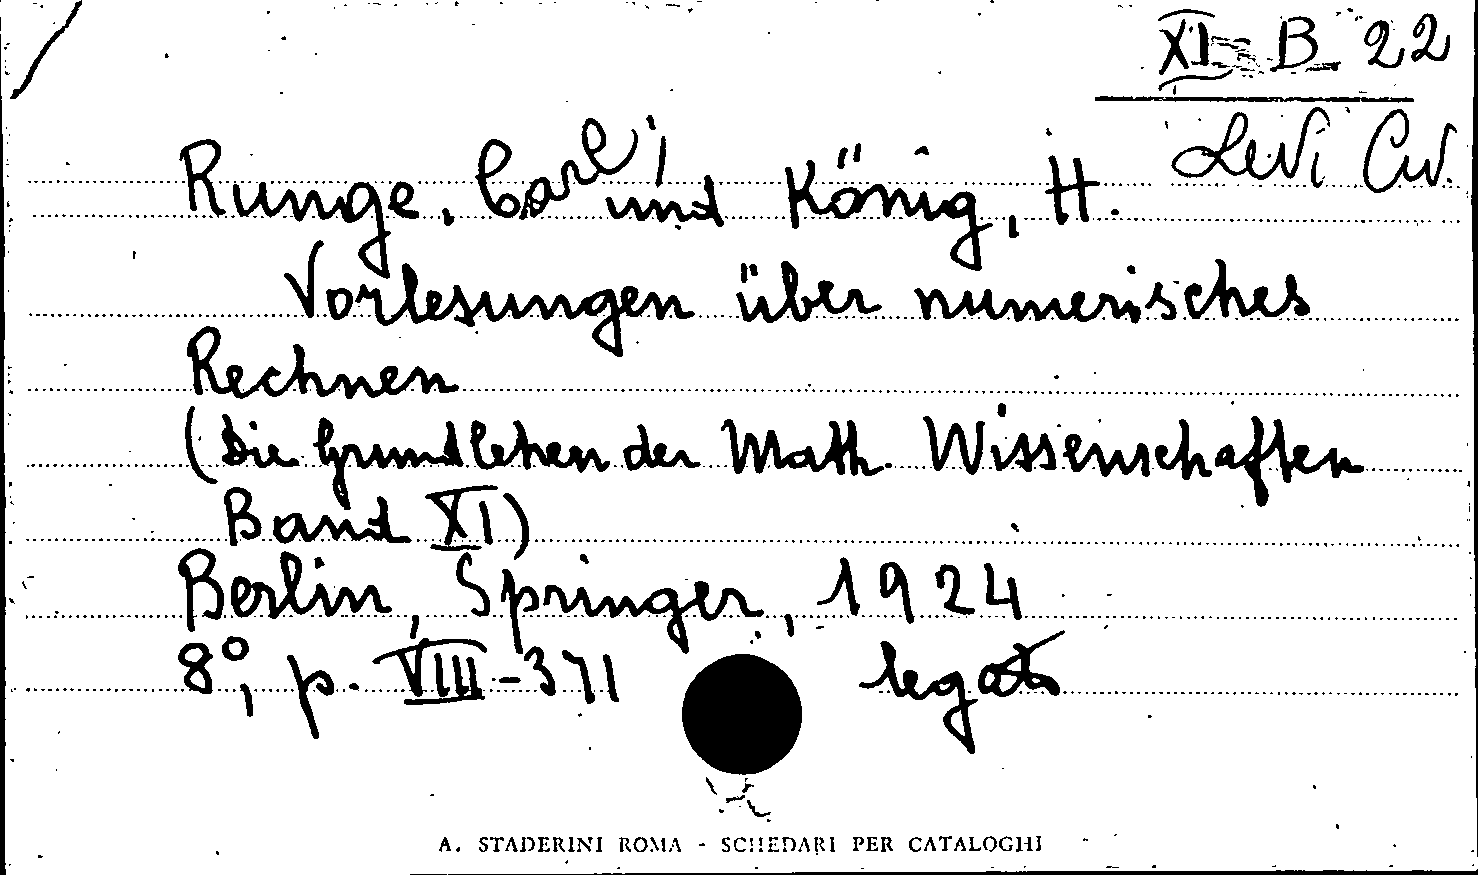 XI-B-22
Levi Civ.
Runge, Carl; und König, H.
Vorlesungen über numerisches
Rechnen
(Die Grundlehen der Math. Wissenschaften
Band XI)
Berlin, Springer, 1924
8°, p. VIII-371 legato
A. STADERINI ROMA - SCHEDARI PER CATALOGHI